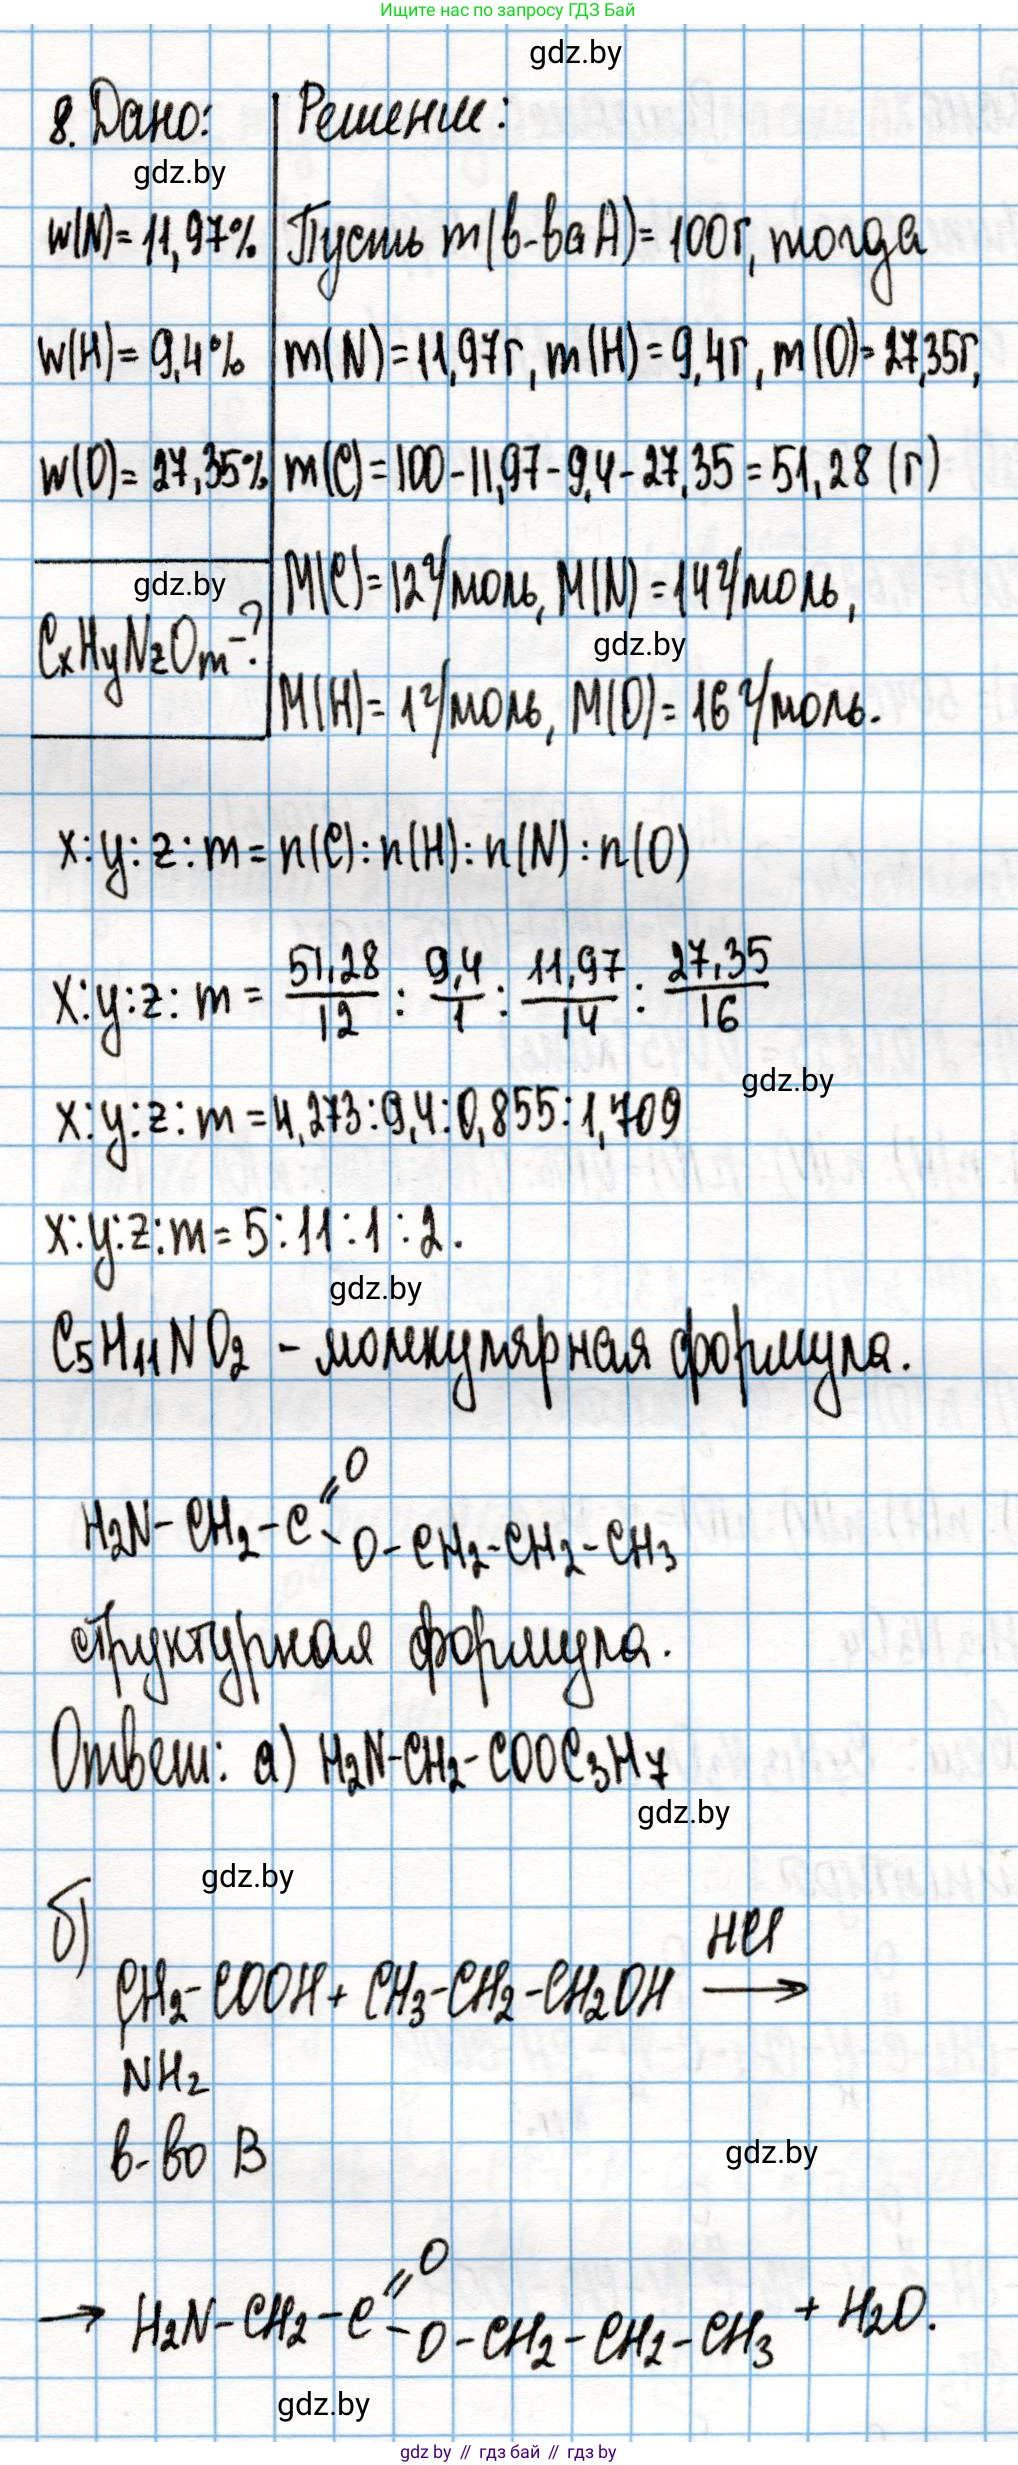 Ищите нас по запросу ГДЗ Бай
gdz.by
8. Дано: Решение:
gdz.by
w(N)=11,97% Пусть m(в-ва A)=100г, тогда
w(H)=9,4% m(N)=11,97г, m(H)=9,4г, m(O)=27,35г,
w(O)=27,35% m(C)=100-11,97-9,4-27,35=51,28 (г)
gdz.by
M(C)=12 г/моль, M(N)=14 г/моль,
gdz.by
CxHyNzOm-?
M(H)=1 г/моль, M(O)=16 г/моль.
x:y:z:m=n(C):n(H):n(N):n(O)
x:y:z:m= 51,28/12 : 9,4/1 : 11,97/14 : 27,35/16
gdz.by
x:y:z:m=4,273:9,4:0,855:1,709
x:y:z:m=5:11:1:2.
gdz.by
C5H11NO2 - молекулярная формула.
O
H2N-CH2-C
O-CH2-CH2-CH3
структурная формула.
Ответ: а) H2N-CH2-COOC3H7
gdz.by
gdz.by
б)
HCl
CH2-COOH+CH3-CH2-CH2OH →
NH2
в-во B
gdz.by
O
→ H2N-CH2-C
O-CH2-CH2-CH3 + H2O.
gdz.by
gdz by // гдз бай // гдз by